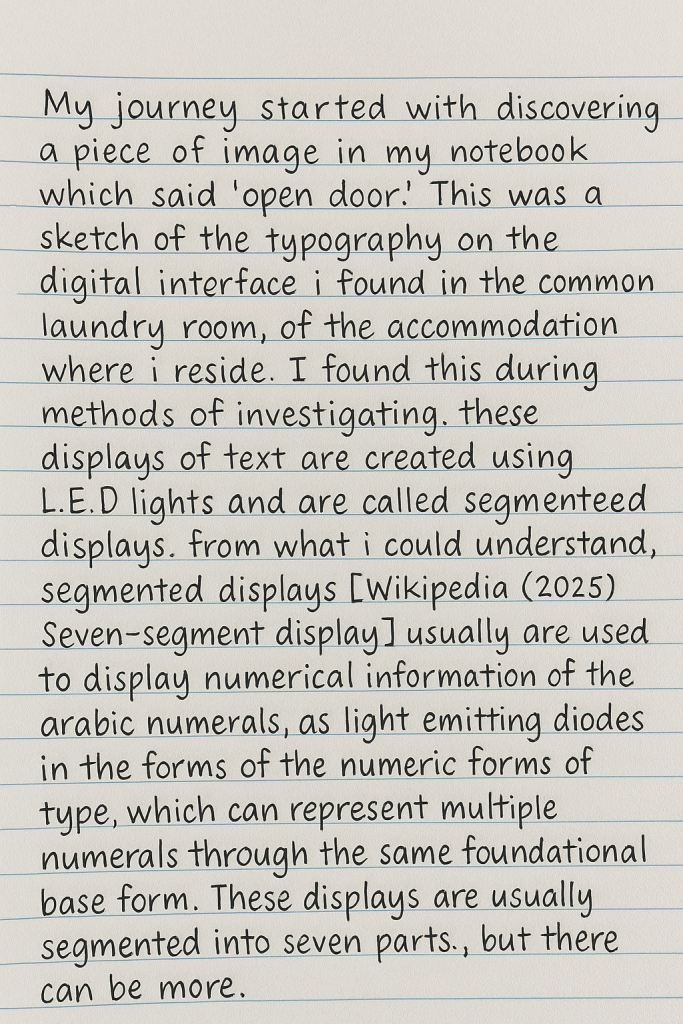 My journey started with discovering
a piece of image in my notebook
which said 'open door.' This was a
sketch of the typography on the
digital interface i found in the common
laundry room, of the accommodation
where i reside. I found this during
methods of investigating. these
displays of text are created using
L.E.D lights and are called segmenteed
displays. from what i could understand,
segmented displays [Wikipedia (2025)
Seven-segment display] usually are used
to display numerical information of the
arabic numerals, as light emitting diodes
in the forms of the numeric forms of
type, which can represent multiple
numerals through the same foundational
base form. These displays are usually
segmented into seven parts., but there
can be more.